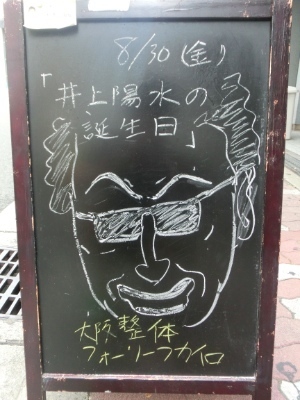 8/30(金)
「井上陽水の
誕生日」
大阪整体
フォーリーフカイロ